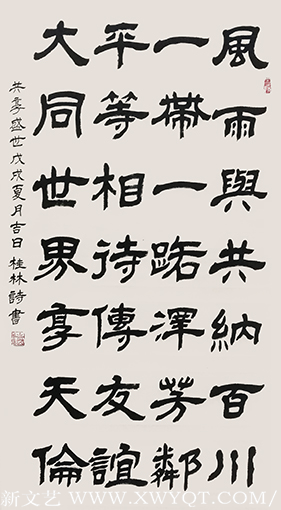 風雨與共納百川
一帶一路澤芳鄰
平等相待傳友誼
大同世界享天倫
共享盛世戊戌夏月吉日桂林詩書
新文艺 WWW.XWYQT.COM/